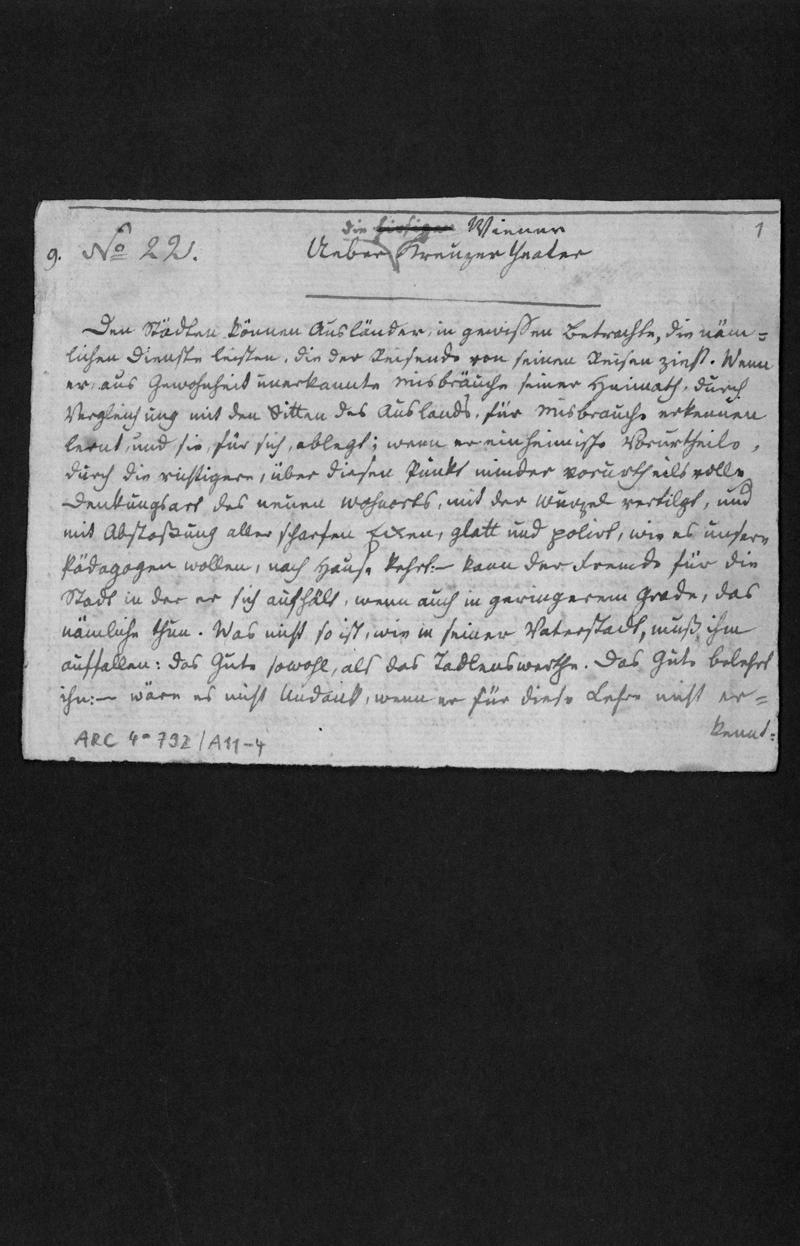 1
die hiesigen Wiener
9. No 22.
Ueber Kreuzertheater
Den Städten können Ausländer, in gewissen Betrachte, die näm=
lichen Dienste leisten, die der Reisende von seinen Reisen zieht. Wenn
er, aus Gewohnheit unerkannte Misbräuche seiner Heimath, durch
Vergleichung mit den Sitten des Auslands, für Misbrauche erkennen
lernt, und sie, für sich, ablegt; wenn er einheimische Vorurtheile,
durch die richtigere, über diesen Punkt minder vorurtheilsvolle
Denkungsart des neuen Wohnorts, mit der Wurzel vertilgt, und
mit Abstoßung aller scharfen Ecken, glatt und polirt, wie es unsere
Pädagogen wollen, nach Hause kehrt:— kann der Fremde für die
Stadt in der er sich aufhält, wenn auch in geringerem Grade, das
nämliche thun. Was nicht so ist, wie in seiner Vaterstadt, muß ihm
auffallen: das Gute sowohl, als das Tadlenswerthe. Das Gute belehrt
ihn:— wäre es nicht Undank, wenn er für diese Lehre nicht er=
kennt=
ARC 4° 792/A11-4